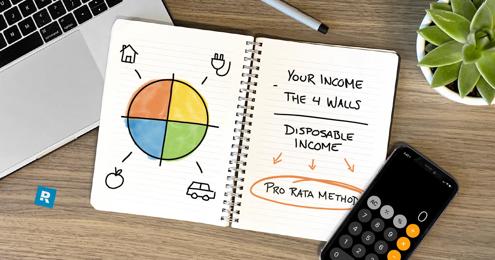 - YOUR INCOME
THE 4 WALLS
DISPOSABLE
INCOME
PRO RATA METHOD
R
AC
0